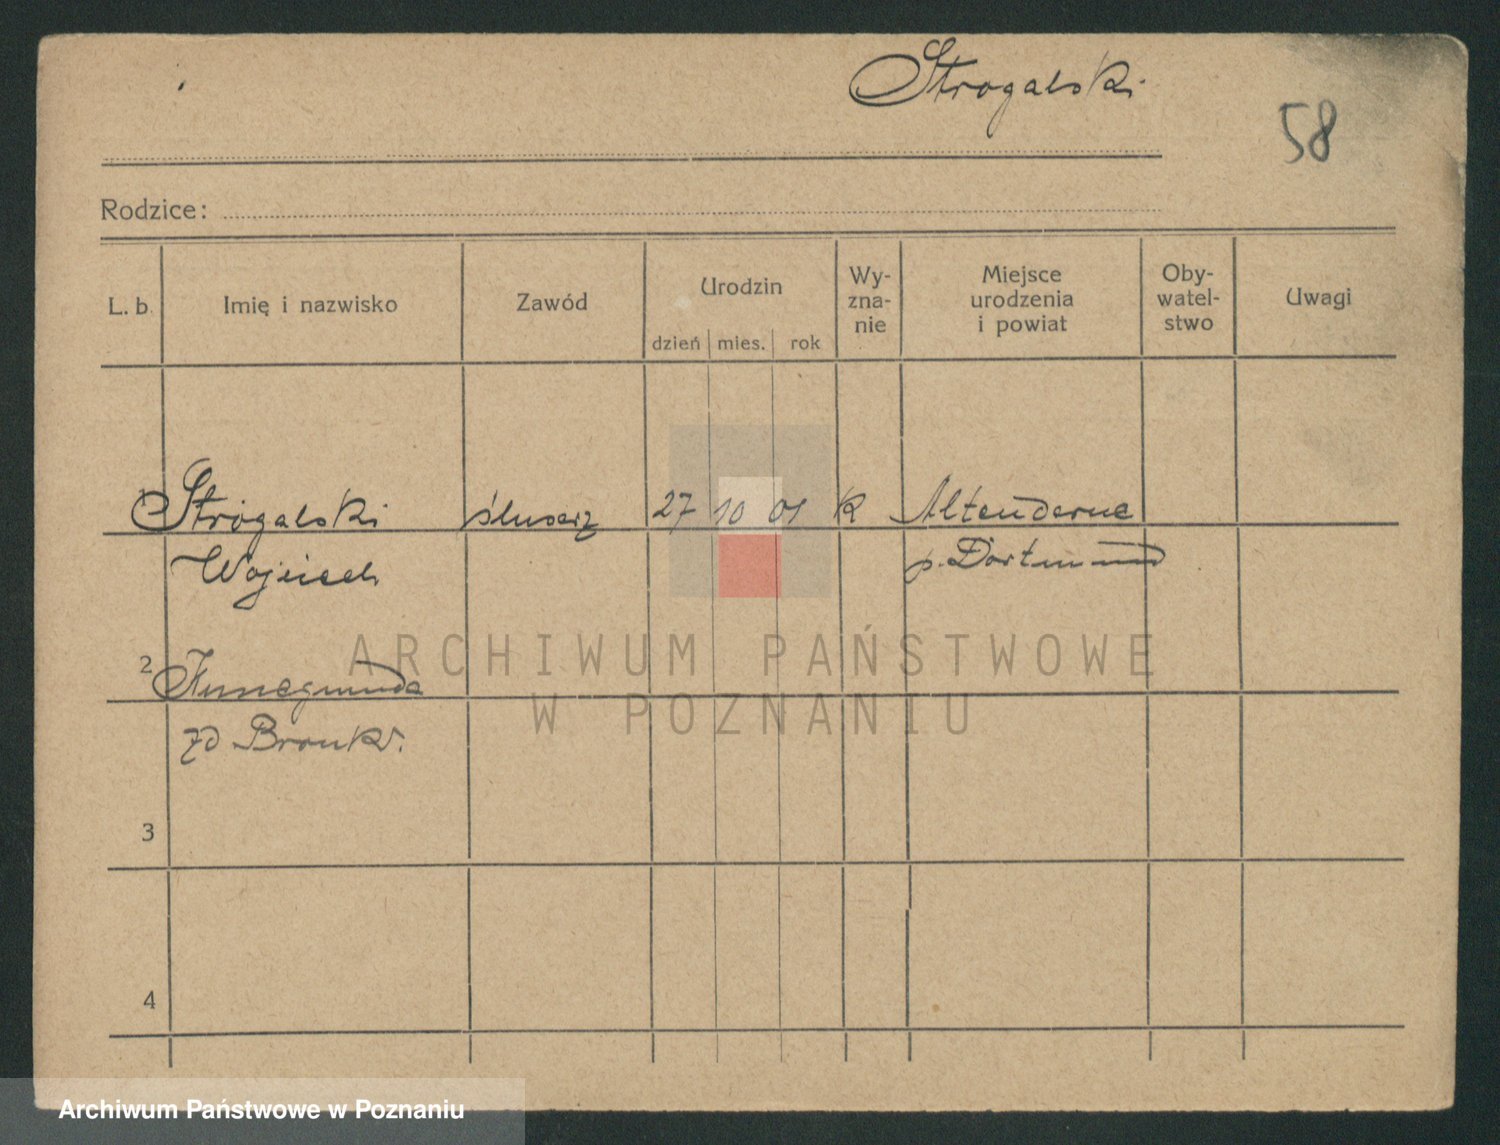 Strogalski
58
Rodzice:
L. b. Imię i nazwisko Zawód Urodzin dzień mies. rok Wy-zna-nie Miejsce urodzenia i powiat Oby-watel-stwo Uwagi
1 Strogalski ślusarz 27 10 01 k Altenderne
Wojciech p. Dortmund
2 Kunegunda
zd
3
4
ARCHIWUM PAŃSTWOWE
W POZNANIU
Archiwum Państwowe w Poznaniu